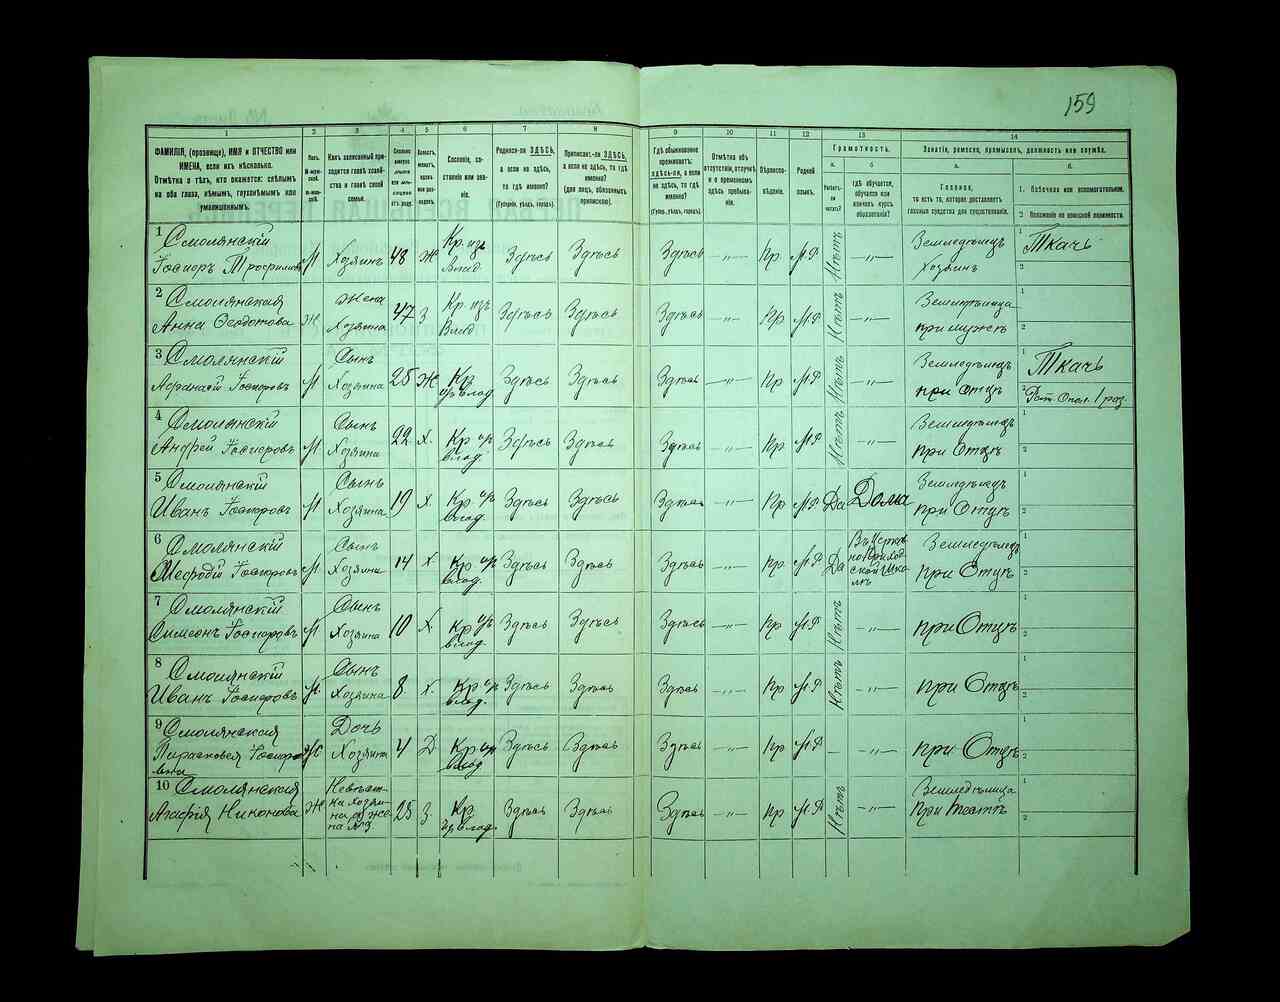 159
1 2 3 4 5 6 7 8 9 10 11 12 13 14
ФАМИЛІЯ, (прозвище), ИМЯ и ОТЧЕСТВО или ИМЕНА, если ихъ нѣсколько.
Отмѣтка о тѣхъ, кто окажется: слѣпымъ на оба глаза, нѣмымъ, глухонѣмымъ или умалишеннымъ.
Полъ.
Какъ записанный приходится главѣ хозяйства и главѣ своей семьи.
Сословіе, состояніе или званіе.
Родился-ли ЗДѢСЬ, а если не здѣсь, то гдѣ именно?
(Губернія, уѣздъ, городъ).
Приписанъ-ли ЗДѢСЬ, а если не здѣсь, то гдѣ именно?
(для лицъ, обязанныхъ припискою).
Гдѣ обыкновенно проживаетъ: здѣсь-ли, а если не здѣсь, то гдѣ именно?
(Губ., уѣздъ, городъ).
Отмѣтка объ отсутствіи, отлучкѣ и о временномъ здѣсь пребываніи.
Вѣроисповѣданіе.
Родной языкъ.
Грамотность.
а. Умѣетъ-ли читать?
б. гдѣ обучается, обучался или кончилъ курсъ образованія?
Занятіе, ремесло, промыселъ, должность или служба.
а. Главное, то есть то, которое доставляетъ главныя средства для существованія.
б. 1. Побочное или вспомогательное.
2 Положеніе по воинской повинности.
1 Смолянскій Госиоръ Трофимовъ М Хозяинъ 48 Ж Кр. изъ Влад Здѣсь Здѣсь Здѣсь —„— Пр М.Р Нѣтъ —„— Земледѣлецъ Хозяинъ 1 Ткачь 2
2 Смолянская Анна Ѳеодотова Ж Жена Хозяина 47 З. Кр изъ Влад Здѣсь Здѣсь Здѣсь —„— Пр М.Р Нѣтъ —„— Земледѣлица при мужѣ 1 2
3 Смолянскій Афанасій М Сынъ Хозяина 25 Ж Кр изъ влад. Здѣсь Здѣсь Здѣсь —„— Пр М.Р Нѣтъ —„— Земледѣлецъ при Отцѣ 1 Ткачь 2 Рат. Опол. 1 раз.
4 Смолянскій Андрей М Сынъ Хозяина 22 Х. Кр изъ влад. Здѣсь Здѣсь Здѣсь —„— Пр М.Р Нѣтъ —„— Земледѣлецъ при Отцѣ 1 2
5 Смолянскій Иванъ М Сынъ Хозяина 19 Х Кр изъ влад. Здѣсь Здѣсь Здѣсь —„— Пр М.Р Да Дома Земледѣлецъ при Отцѣ 1 2
6 Смолянскій Мефодій М Сынъ Хозяина 14 Х Кр изъ влад. Здѣсь Здѣсь Здѣсь —„— Пр М.Р Да Въ Церковно Приходской Школѣ Земледѣлецъ при Отцѣ 1 2
7 Смолянскій Симеонъ М Сынъ Хозяина 10 Х Кр изъ влад. Здѣсь Здѣсь Здѣсь —„— Пр М.Р Нѣтъ —„— при Отцѣ 1 2
8 Смолянскій Иванъ М. Сынъ Хозяина 8 Х. Кр изъ влад. Здѣсь Здѣсь Здѣсь —„— Пр М.Р Нѣтъ —„— при Отцѣ 1 2
9 Смолянская Параскевея Ж Дочь Хозяина 4 Д Кр изъ влад Здѣсь Здѣсь Здѣсь —„— Пр М.Р — —„— при Отцѣ 1 2
10 Смолянская Агафія Никонова Ж Невѣстка хозяина жена №3 25 З. Кр изъ влад. Здѣсь Здѣсь Здѣсь —„— Пр М.Р Нѣтъ —„— Земледѣлица 1 2